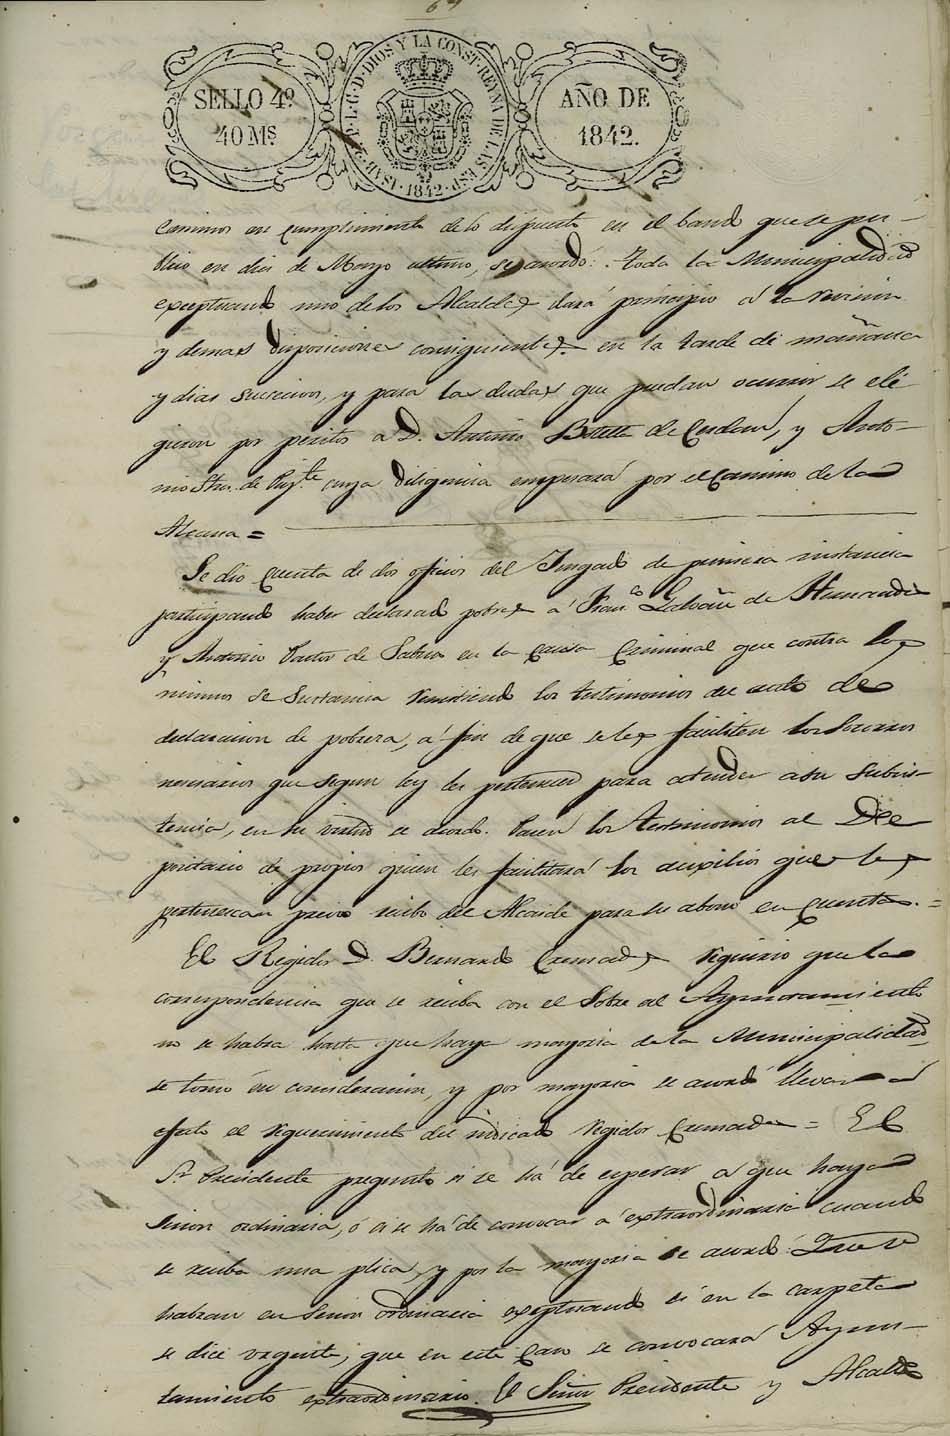 64
SELLO 4º
40 MS.
ISAB. 2ª P. L. G. D. DIOS Y LA CONST. REYNA DE LAS ESP. 1842.
AÑO DE
1842.
caminos en cumplimiento de lo dispuesto en el bando que se pu-
blicó en dies de Marzo ultimo, se acordó: Toda la Municipalidad
exceptuando uno de los Alcaldes dará principio á la revision
y demas disposiciones consiguientes en la tarde de mañana
y dias sucecivos, y para las dudas que puedan ocurrir se eli-
gieron por peritos a D. Antonio Botella de Cerdan, y Anto-
nio de cuya diligencia empesará por el Camino de la
=
Se dio cuenta de dos oficios del Jusgado de primera instancia
participando haber declarado pobres a Franco. Galvañ de Hernandes
y Antonio Pastor de Sabuco en la Causa Criminal que contra los
mismos se sustancia remitiendo los testimonios del auto de
declaracion de pobresa, á fin de que se les faciliten los socorros
necesarios que segun ley les pertenecen para atender a su subsis-
tencia, en su virtud se acordó. Pasen los testimonios al De
positario de propios quien les facilitará los auxilios que les
pertenescan previo recibo del Alcaide para su abono en cuentas. =
El Regidor D. Bernardo Cremades requirio que la
correspondencia que se reciba con el sobre al Ayuntamiento
no se habra hasta que haya mayoria de la Municipalidad
se tomó en consideracion, y por mayoria se acordó llevar á
efecto el requerimiento del indicado regidor Cremades = El
Sr. Presidente preguntó si se há de esperar á que haya
secion ordinaria, ó si se há de convocar a extraordinaria cuando
se reciba una plica, y por la mayoria se acordó: Que se
habran en secion ordinaria exeptuando si en la carpeta
se dice urgente, que en este caso se convocará Ayun-
tamiento extraordinario. El Señor Presidente y Alcalde